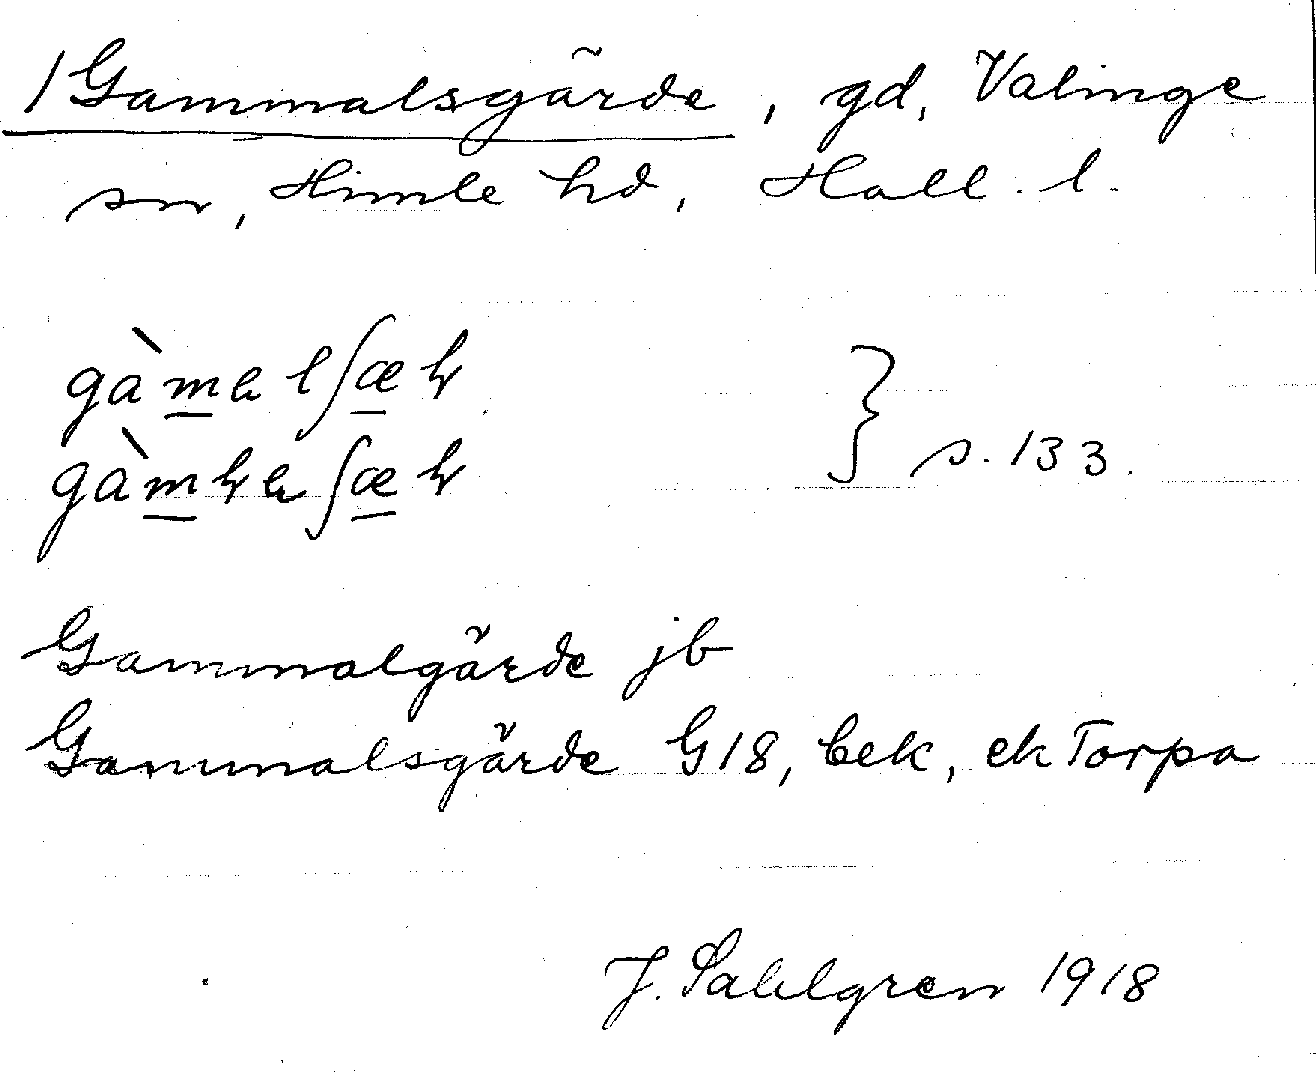 /Gammalsgärde, gd, Valinge
sn, Himle hd, Hall. l.
gàmalʃæh
gàmhaʃæh } s. 133.
Gammalgärde jb
Gammalsgärde G18, bek, ek Torpa
J. Sahlgren 1918